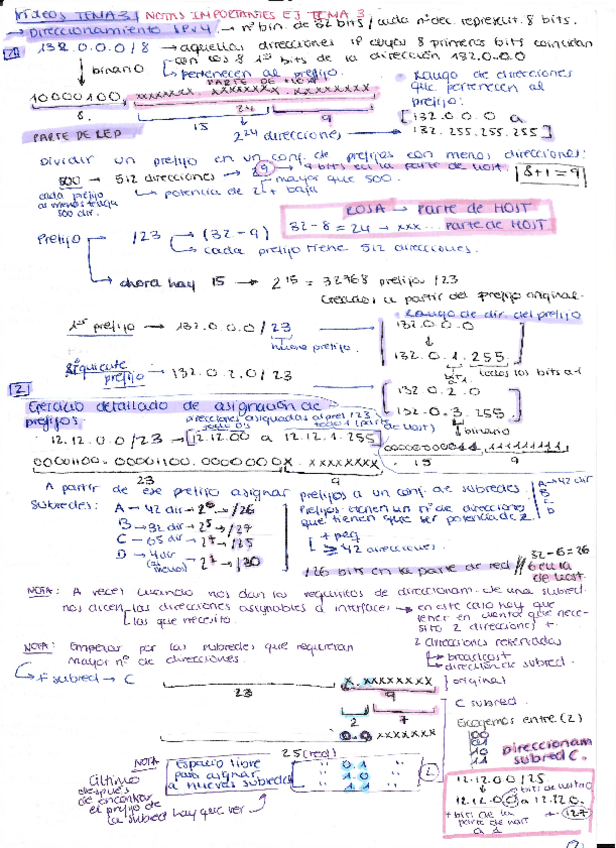 Vídeos TEMA 3 | NOTAS IMPORTANTES EJ TEMA 3
→ Direccionamiento IPv4 → nº bin. de 32 bits / cada nº dec. represent. 8 bits.
132.0.0.0/8 → aquellas direcciones IP cuyos 8 primeros bits coincidan
con los 8 1os bits de la dirección 132.0.0.0
↓ binario
pertenecen al prefijo.
PARTE DE HOST
10000100, xxxxxxxx . xxxxxxxx . xxxxxxxx
Rango de direcciones
que pertenecen al
prefijo:
[132.0.0.0 a
132.255.255.255]
8.
24
15
9
PARTE DE RED
2^24 direcciones
Dividir un prefijo en un conj. de prefijos con menos direcciones:
500 → 512 direcciones → 2^9 → 9 bits en la parte de host
8+1=9
mayor que 500.
cada prefijo
al menos tenga
500 dir.
potencia de 2 + baja
ROSA → Parte de HOST
32-8 = 24 → xxx... Parte de HOST
Prefijo
/23 → (32-9)
cada prefijo tiene 512 direcciones.
ahora hay 15 → 2^15 = 32768 prefijos /23
creados a partir del prefijo original.
Rango de dir. del prefijo
1er prefijo → 132.0.0.0/23
nuevo prefijo.
132.0.0.0
↓
132.0.1.255
todos los bits a 1
Siguiente
prefijo → 132.0.2.0/23
132.0.2.0
132.0.3.255
↓ binario
2
Ejercicio detallado de asignación de
prefijos
direcciones asignadas al pref /23
12.12.0.0/23 → [12.12.0.0 a 12.12.1.255]
00000011, 11111111
15
9
00001100. 00001100. 0000000x. xxxxxxxx
23
9
A partir de ese prefijo asignar prefijos a un conj. de subredes
A → 42 dir
B
C
D
Subredes:
A → 42 dir → 2^6 → /26
B → 32 dir → 2^5 → /27
C → 65 dir → 2^7 → /25
D → 4 dir → 2^2 → /30
(al menos)
Prefijos tienen un nº de direcciones
que tienen que ser potencia de 2
+ peq
≥ 42 direcciones.
/26 bits en la parte de red // 32-6=26
6 en la
de host.
NOTA: A veces cuando nos dan los requisitos de direccionam. de una subred
nos dicen las direcciones asignables a interfaces → en este caso hay que
las que necesito.
tener en cuenta que nece-
sito 2 direcciones +
2 direcciones reservadas
broadcast
dirección de subred.
NOTA: Empezar por las subredes que requieran
mayor nº de direcciones.
1ª subred → C
x. xxxxxxxx
original
23
9
2
7
0.0 xxxxxxx
25 (red)
C subred.
Escogemos entre (2)
00
01
10
11
direccionam
subred C.
NOTA
Espacio libre
para asignar
a nuevas subredes
0.1
1.0
1.1
Último
después
de encontrar
el prefijo de
la subred hay que ver
12.12.0.0/25.
↓ bits de host a 0
12.12.0.0 a 12.12.0.
127
+ bits de la
parte de host
a 1